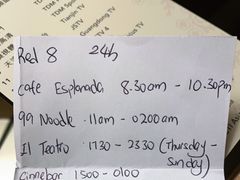 TDM Spo
Tianjin TV
JSTV
Guangdong TV
TV 4
Aus TV
Red 8 24h
Cafe Esplanada 8.30am - 10.30pm
99 Noodle 11am - 0200am
Il Teatro 1730 - 2330 (Thursday -
Sunday)
Cinnebar 1500 - 0100